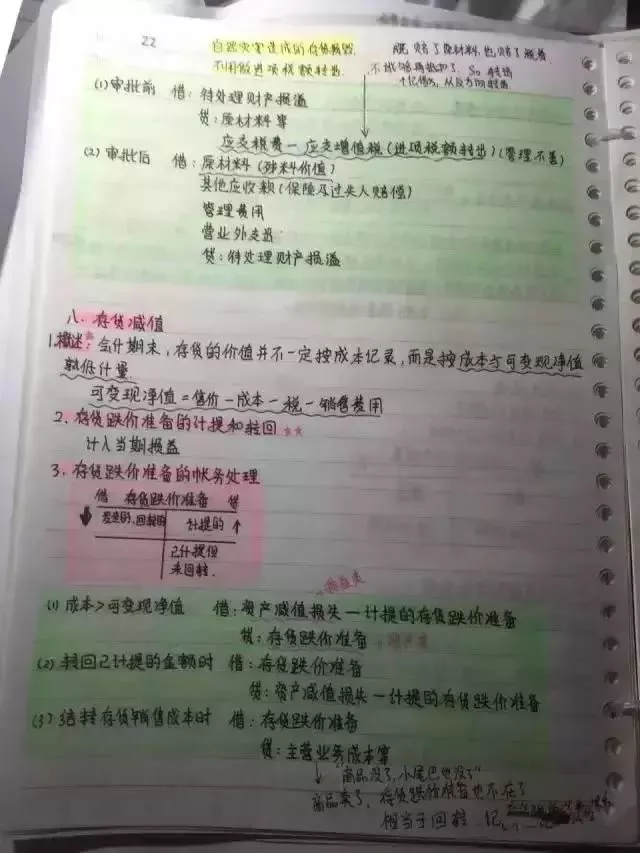 22 自然灾害造成的存货毁损 既赔了原材料,也赔了税费.
不用做进项税额转出. 不能够再抵扣了. So 转出
(1)审批前 借:待处理财产损溢
贷:原材料等
应交税费—应交增值税(进项税额转出)(管理不善)
(2)审批后 借:原材料(残料价值)
其他应收款(保险及过失人赔偿)
管理费用
营业外支出
贷:待处理财产损溢
八.存货减值
1.概述:会计期末,存货的价值并不一定按成本记录,而是按成本与可变现净值
孰低计量.
可变现净值=售价-成本-税-销售费用
2.存货跌价准备的计提和转回
计入当期损益
3.存货跌价准备的帐务处理
借 存货跌价准备 贷
发生的,回转的 计提的
已计提但
未回转.
(1)成本>可变现净值 借:资产减值损失—计提的存货跌价准备
贷:存货跌价准备
(2)转回已计提的金额时 借:存货跌价准备
贷:资产减值损失—计提的存货跌价准备
(3)结转存货销售成本时 借:存货跌价准备
贷:主营业务成本等
"商品没了,小尾巴也没了"
商品卖了,存货跌价准备也不在了
相当于回转 记